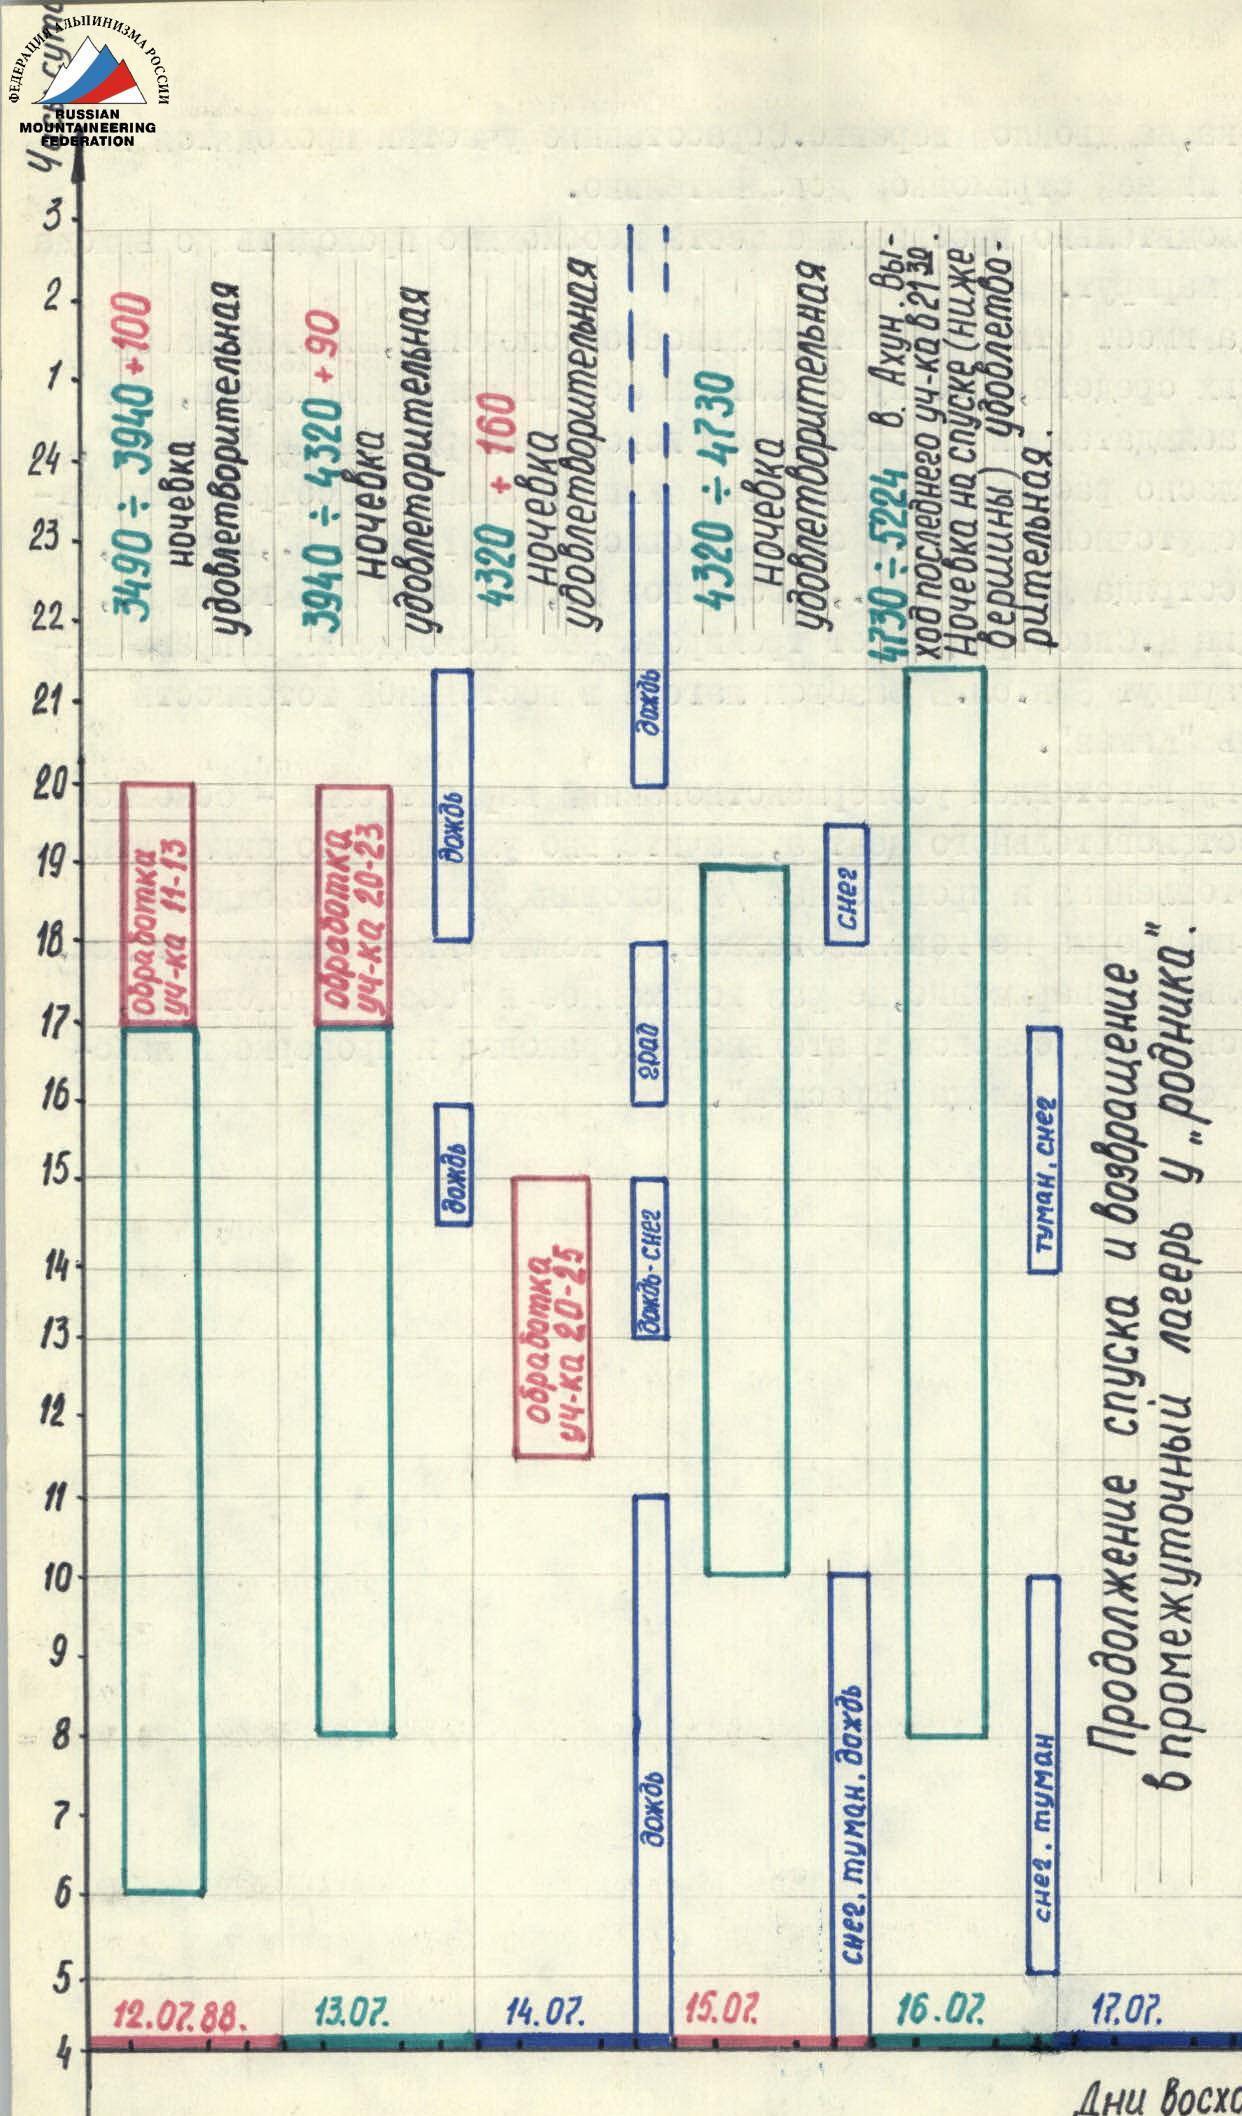 ФЕДЕРАЦИЯ АЛЬПИНИЗМА РОССИИ
RUSSIAN
MOUNTAINEERING
FEDERATION
3
2
1
24
23
22
21
20
19
18
17
16
15
14
13
12
11
10
9
8
7
6
5
4
3490 ÷ 3940 +100
ночевка
удовлетворительная
обработка
уч-ка 11-13
12.07.88.
3940 ÷ 4320 + 90
ночевка
удовлеторительная
обработка
уч-ка 20-23
дождь
дождь
13.07.
4320 + 160
ночевка
удовлетворительная
обработка
уч-ка 20-25
дождь
град
дождь-снег
дождь
14.07.
4320 ÷ 4730
ночевка
удовлетворительная
снег
снег, туман, дождь
15.07.
4730 ÷ 5224 в. Ахун. Вы-
ход последнего уч-ка в 21 30.
Ночевка на спуске (ниже
вершины) удовлетво-
рительная.
туман, снег
снег, туман
16.07.
Продолжение спуска и возвращение
в промежуточный лагерь у „родника".
17.07.
Дни